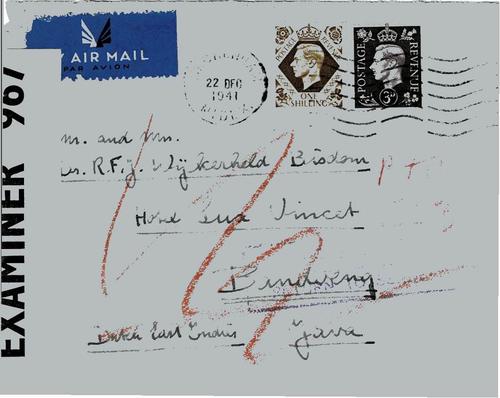 AIR MAIL
PAR AVION
EXAMINER 967
22 DEC
1941
POSTAGE REVENUE
ONE SHILLING
POSTAGE REVENUE
3D
m. and mrs.
R.F.J. Wijkerheld Bisdom
Hotel Lux Vincet
Bandoeng
Dutch East Indies Java